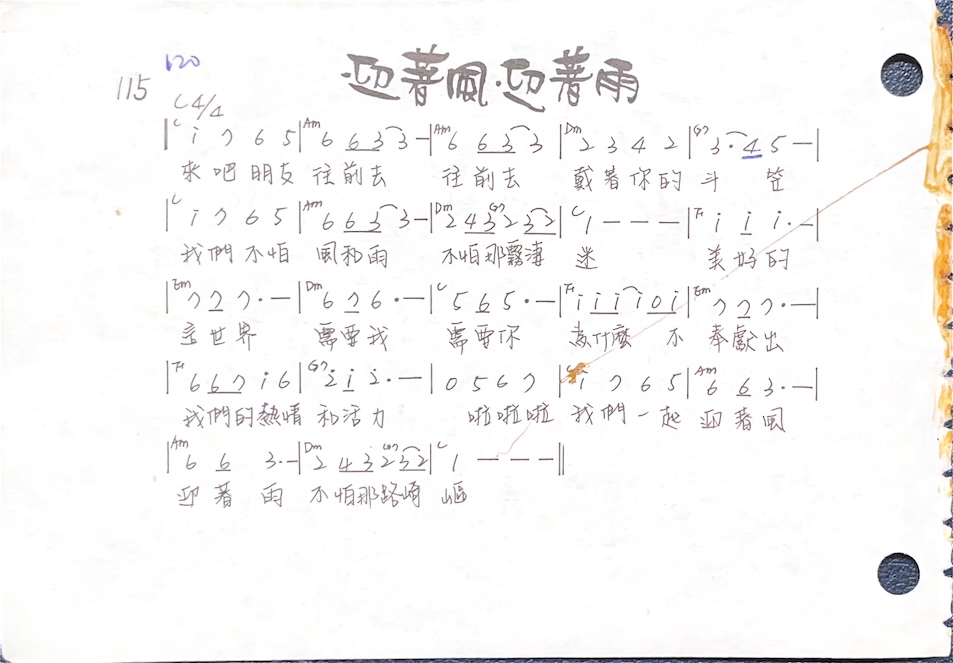 120
迎著風·迎著雨
115
C 4/4
|C i 7 6 5 |Am 6 6 3 3 - |Am 6 6 3 3 |Dm 2 3 4 2 |G7 3· 4 5 - |
來吧朋友 往前去 往前去 戴著你的斗 笠
|C i 7 6 5 |Am 6 6 3 3 - |Dm 2 4 3 G7 2 3 2 |C 1 - - - |F i i i· - |
我們不怕 風和雨 不怕那霧淒 迷 美好的
|Em 7 2 7· - |Dm 6 7 6· - |C 5 6 5· - |F i i i i 0 i |Em 7 2 7· - |
世界 需要我 需要你 為什麼 不 奉獻出
|F 6 6 7 i 6 |G7 2 i 2· - | 0 5 6 7 |C i 7 6 5 |Am 6 6 3· - |
我們的熱情 和活力 啦啦啦 我們一起 迎著風
|Am 6 6 3· - |Dm 2 4 3 G7 2 3 2 |C 1 - - - ||
迎著 雨 不怕那路崎 嶇